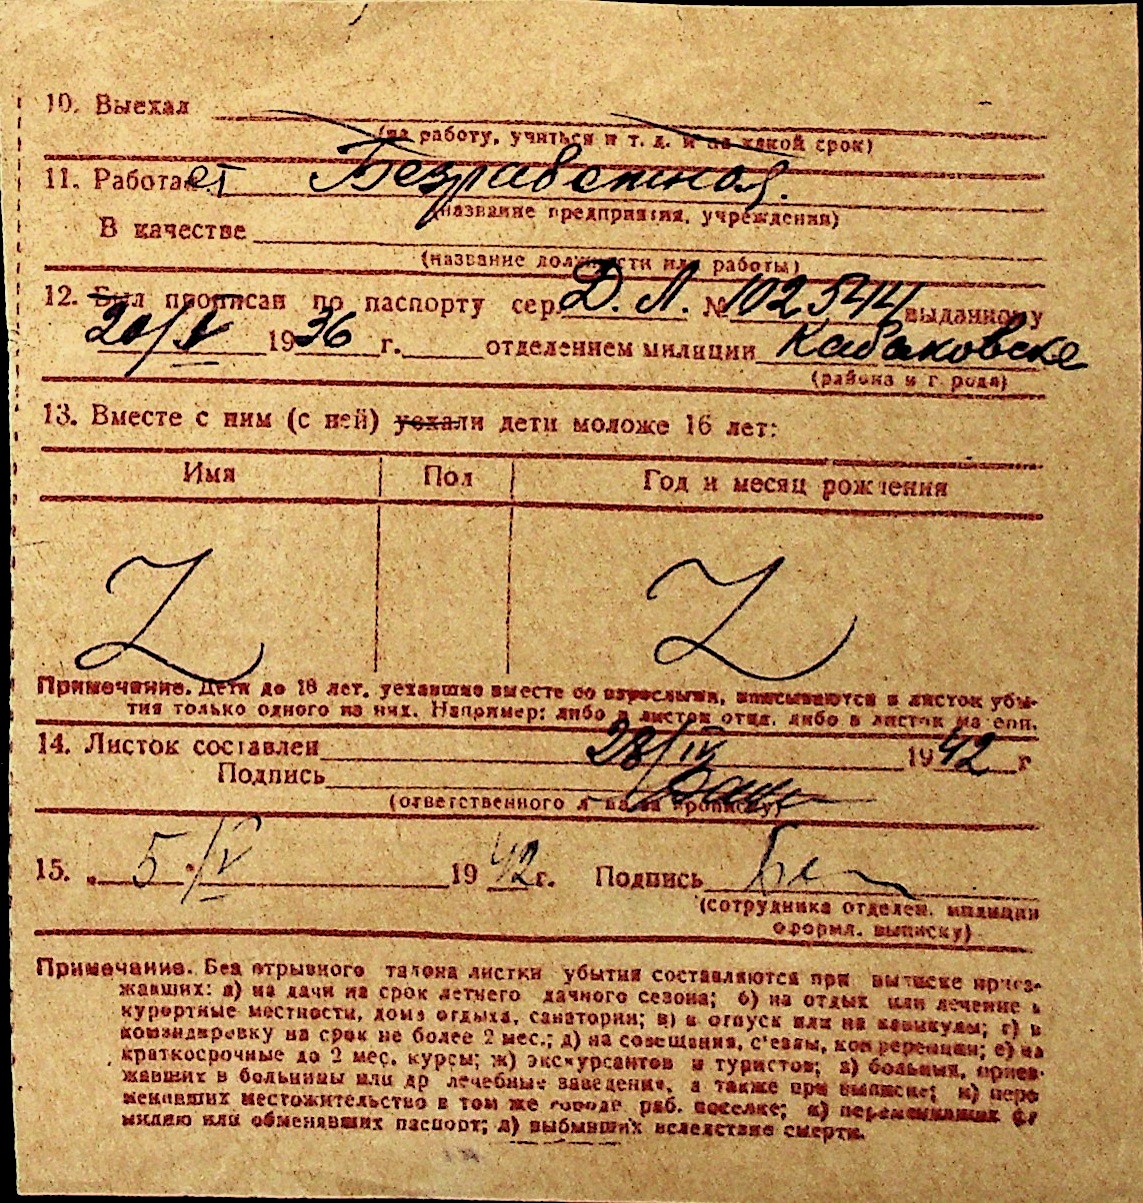 10. Выехал
(на работу, учиться и т. д. и на какой срок)
11. Работает
(название предприятия, учреждения)
В качестве
(название должности или работы)
12. Был прописан по паспорту сер. Д. Л. № 102544 выданному
20/V 1936 г. отделением милиции Кабаковске
(района и города)
13. Вместе с ним (с ней) уехали дети моложе 16 лет:
Имя Пол Год и месяц рождения
Z Z
Примечание. Дети до 16 лет, уехавшие вместе со взрослыми, вписываются в листок убы-
тия только одного из них. Например: либо в листок отца, либо в листок матери.
14. Листок составлен 28/IV 1942 г
Подпись
(ответственного за прописку)
15. „ 5 " V 1942 г. Подпись
(сотрудника отделен. милиции
оформл. выписку)
Примечание. Без отрывного талона листки убытия составляются при выписке приез-
жавших: а) на дачи на срок летнего дачного сезона; б) на отдых или лечение в
курортные местности, дома отдыха, санатории; в) в отпуск или на каникулы; г) в
командировку на срок не более 2 мес.; д) на совещания, с'езды, конференции; е) на
краткосрочные до 2 мес. курсы; ж) экскурсантов и туристов; з) больных, приез-
жавших в больницы или др лечебные заведения, а также при выписке; и) пере
менивших местожительство в том же городе раб. поселке; к) переменивших фа
милию или обменявших паспорт; л) выбывших вследствие смерти.